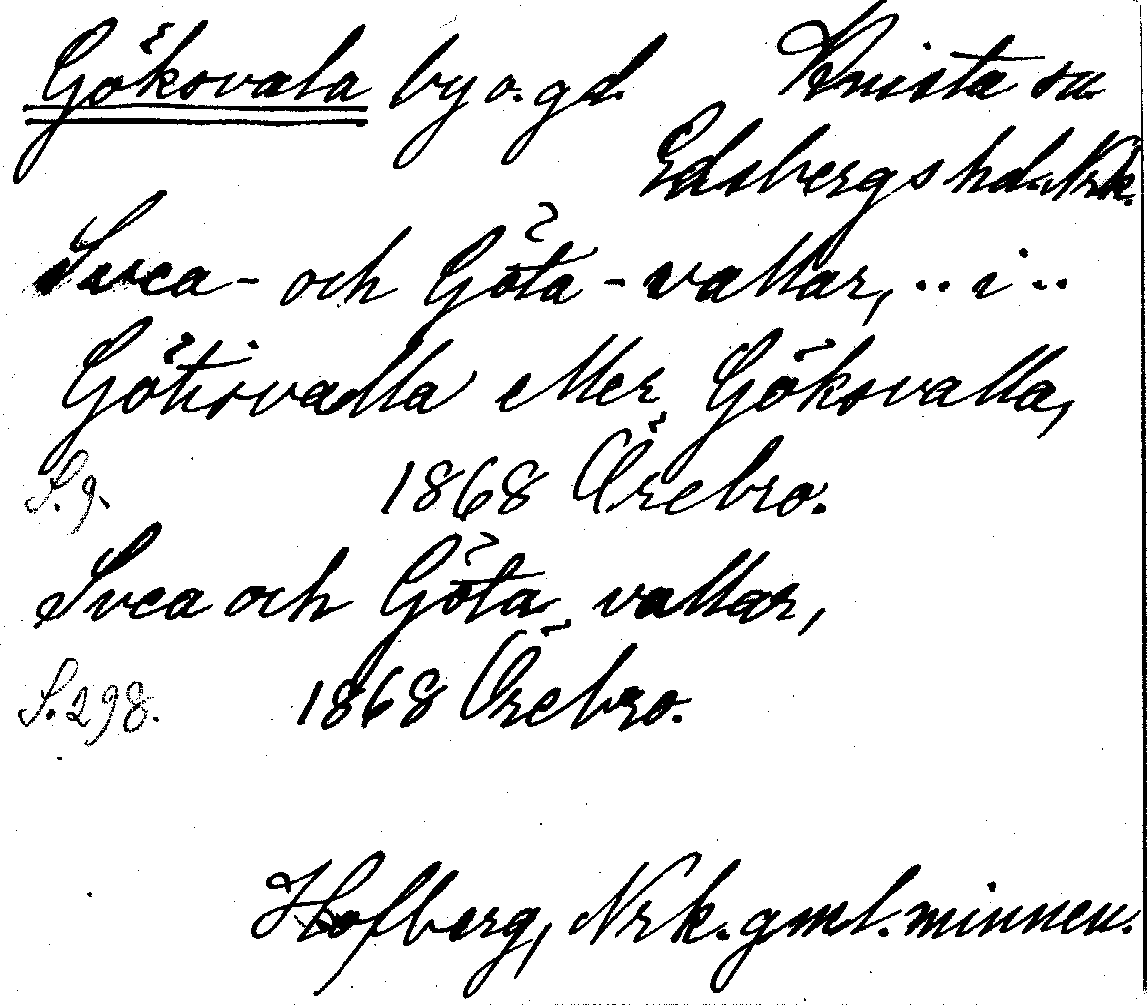 Göksvala by o. gd. Knista sn
Edsbergs hd. Nrk.
Svea- och Göta-vallar, .. i ..
Götisvalla eller Göksvalla,
S. 9. 1868 Örebro.
Svea och Göta vallar,
S. 298. 1868 Örebro.
Hofberg, Nrk. gml. minnen.